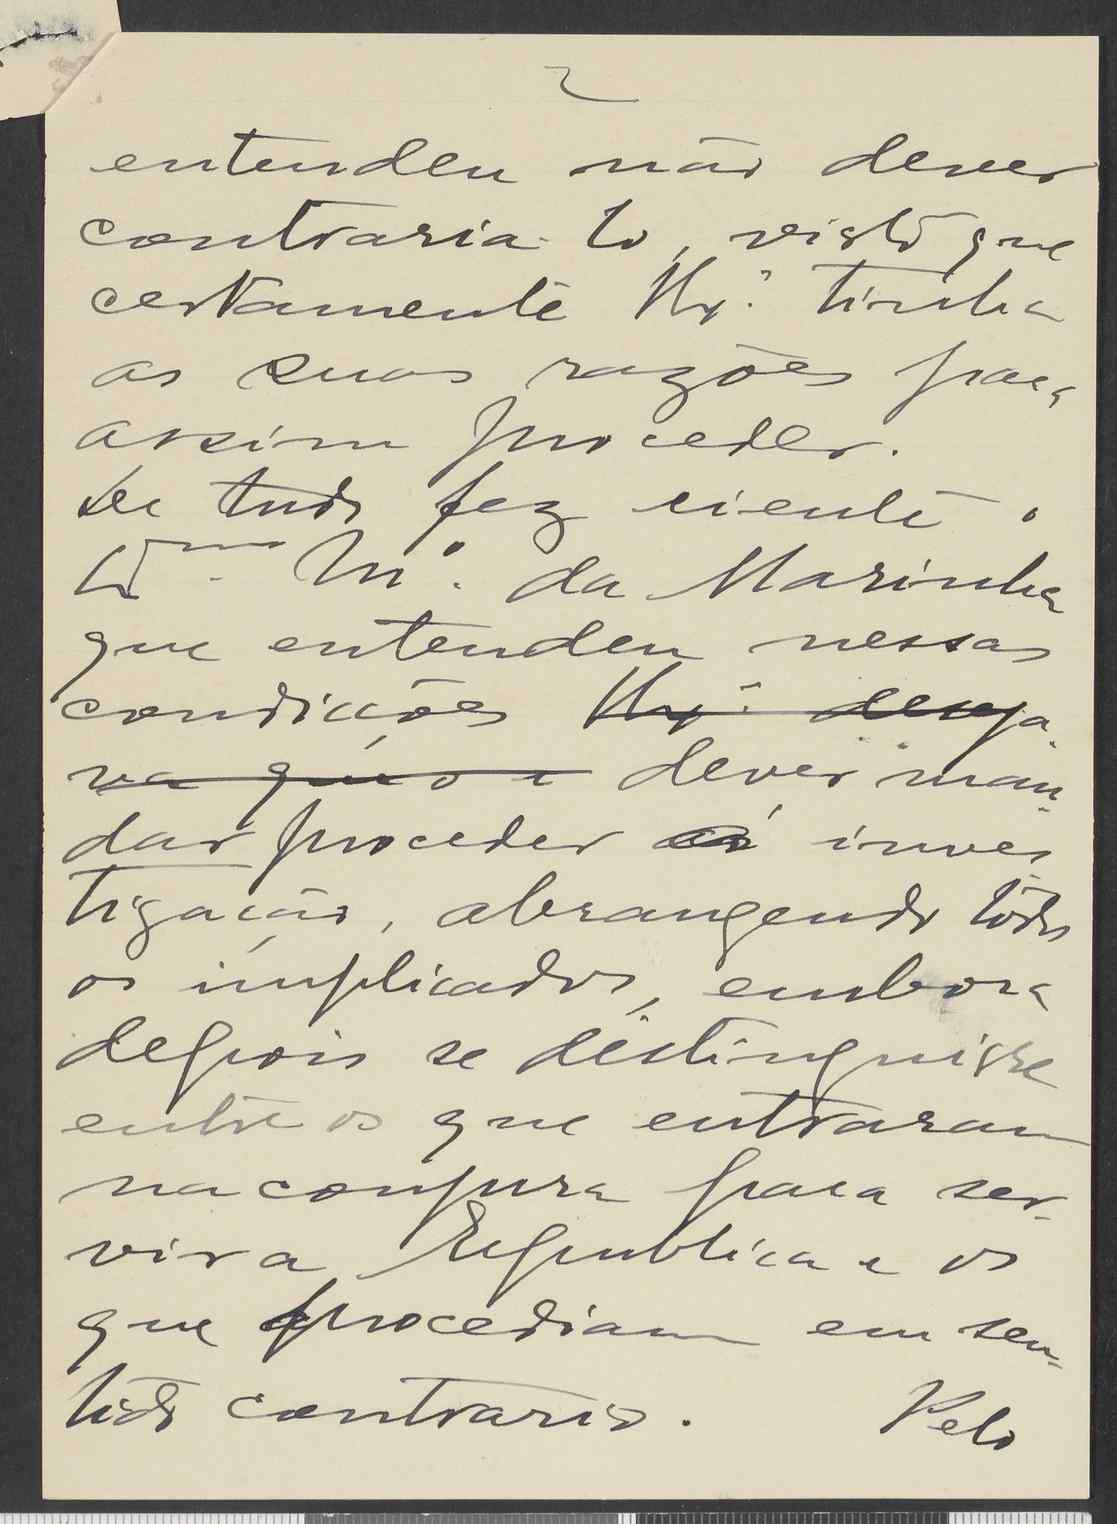 2
entendeu não dever
contraria-lo, visto que
certamente tinha
as suas razões para
assim proceder.
De tudo fez ciente o
Ex.mo M.o da Marinha
que entendeu nessas
condicções deseja-
va que o e dever man-
dar proceder a inves
tigação, abrangendo todos
os implicados, embora
depois se destinguisse
entre os que entraram
na conjura para ser-
vir a Republica e os
que procediam em sen-
tido contrario. Pelo